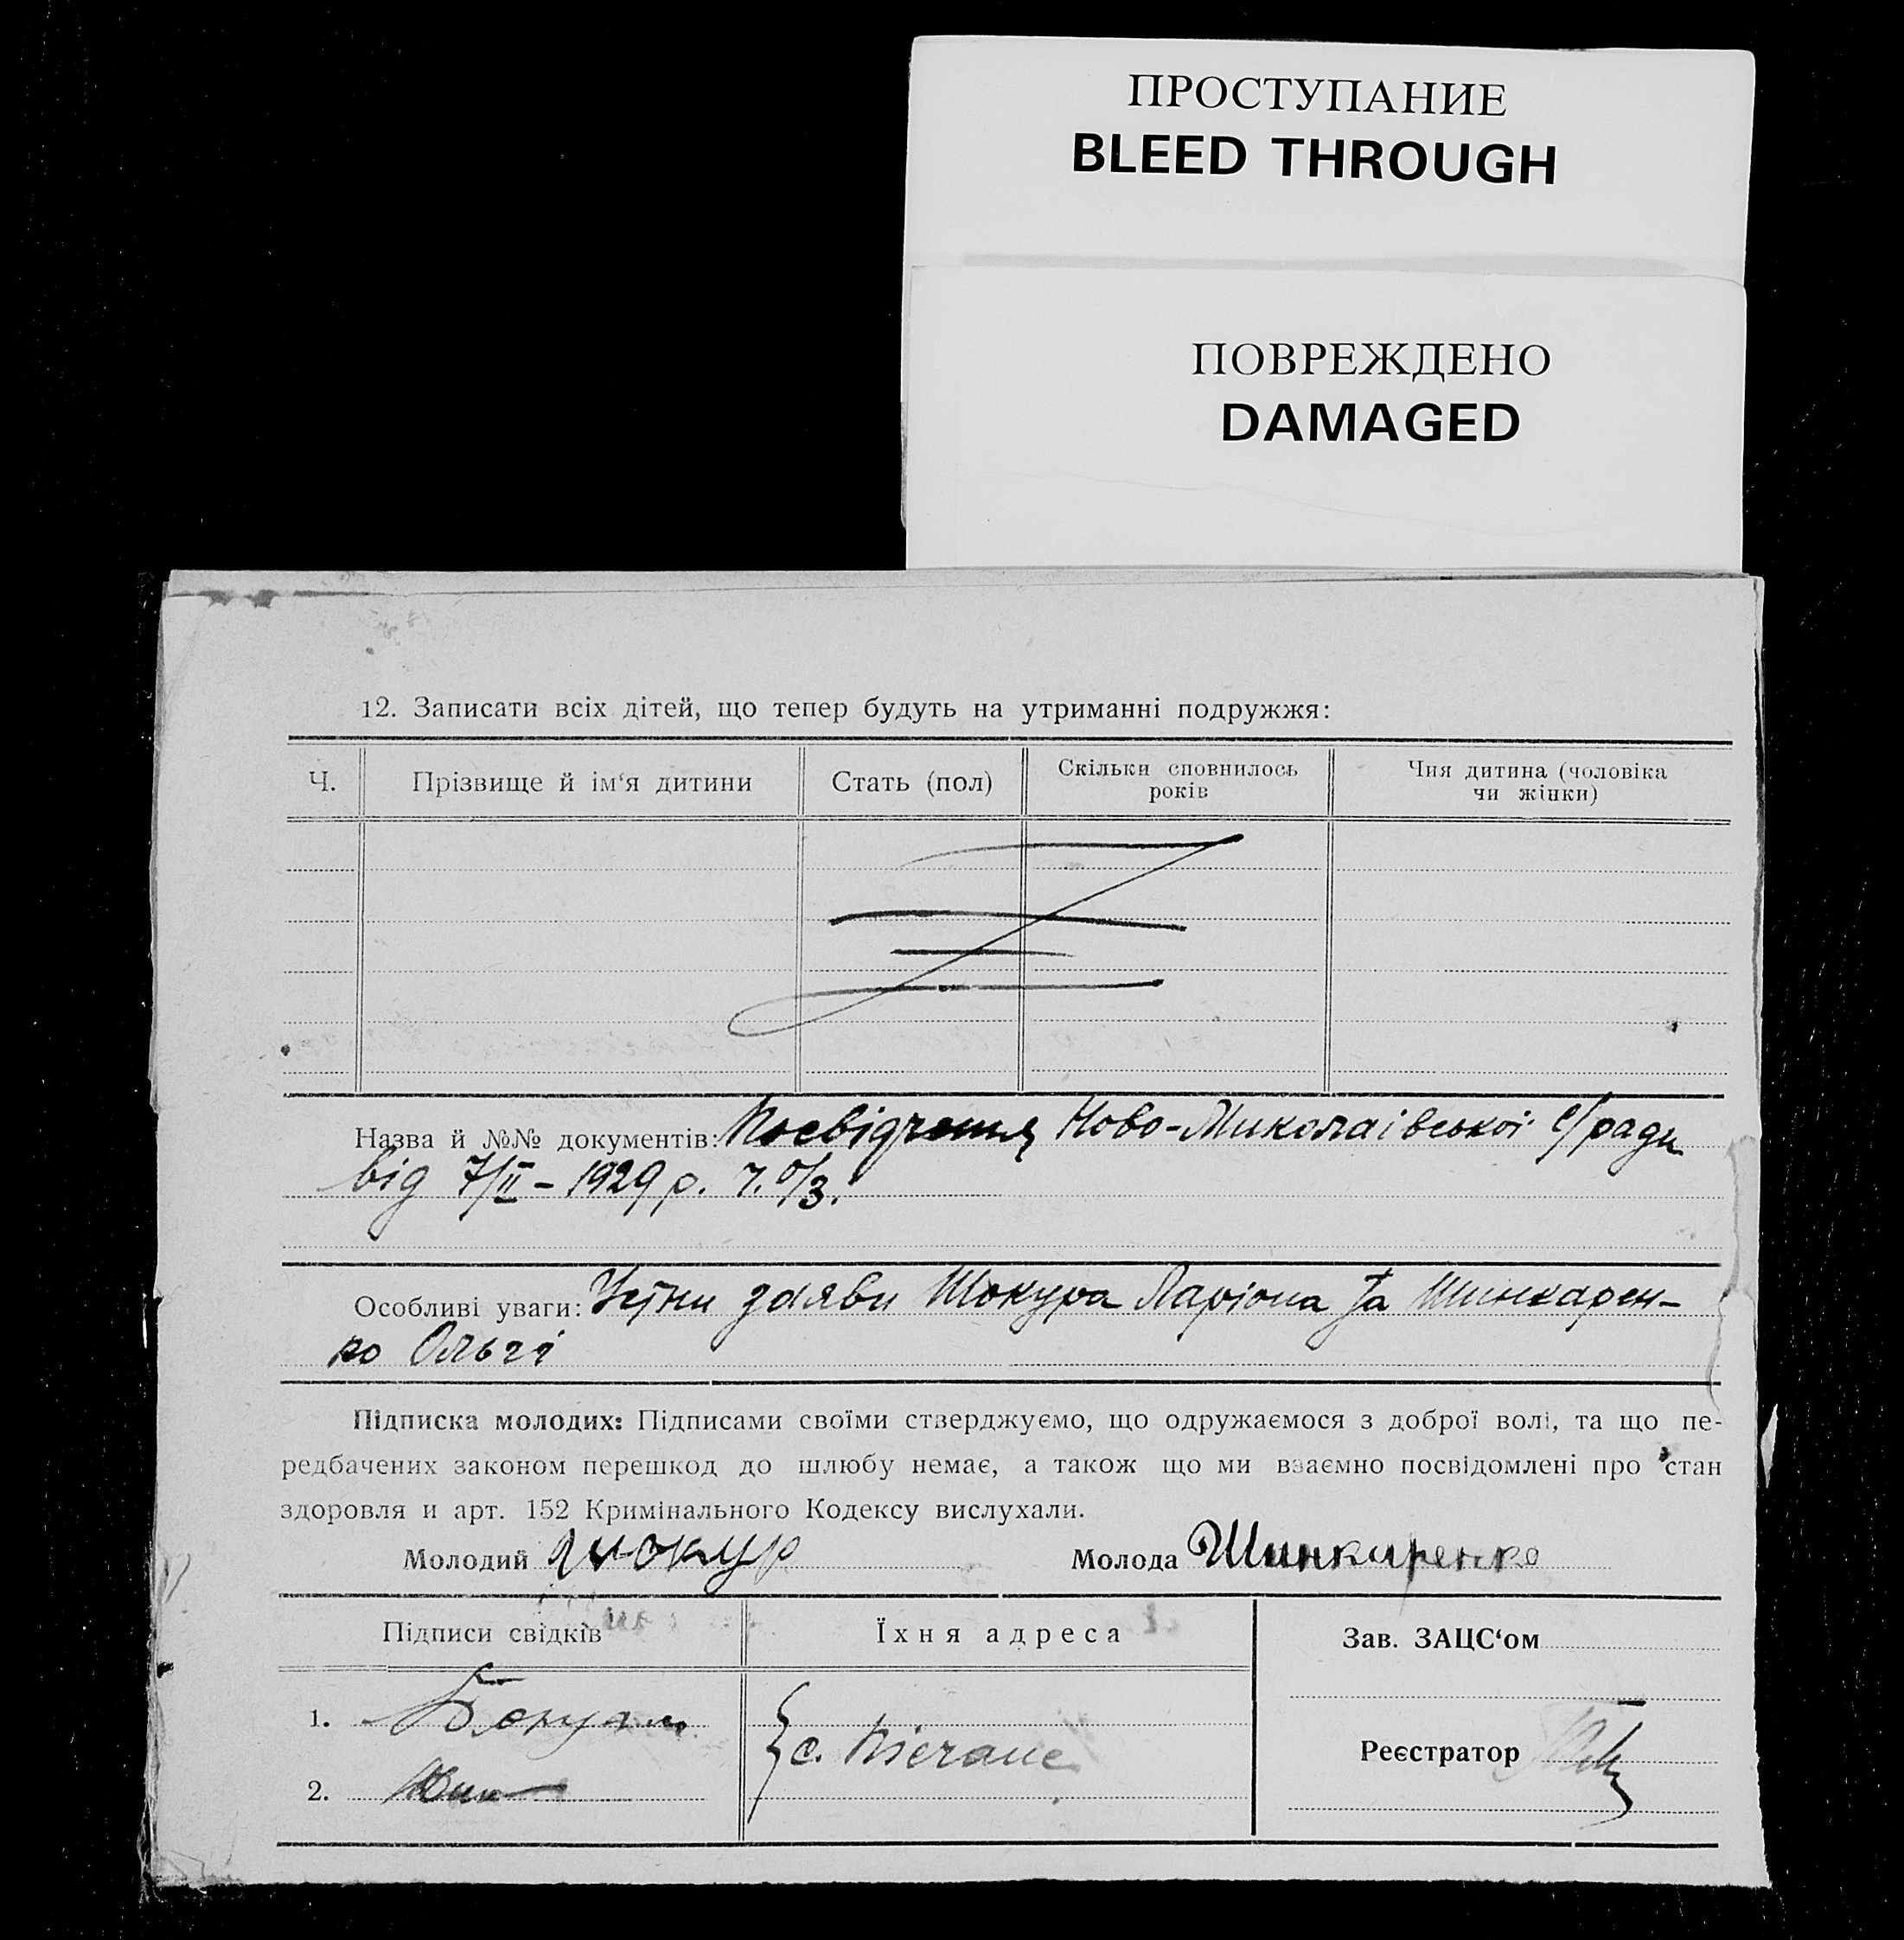 ПРОСТУПАНИЕ
BLEED THROUGH
ПОВРЕЖДЕНО
DAMAGED
12. Записати всіх дітей, що тепер будуть на утриманні подружжя:
Ч.
Прізвище й ім‘я дитини
Стать (пол)
Скільки сповнилось
років
Чия дитина (чоловіка
чи жінки)
Назва й №№ документів: Посвідчення Ново-Миколаівськоі с/ради
від 7/II – 1929 р. ч. о/з.
Особливі уваги: Устни заяви Шокура Ларіона та Шинкарен-
ко Ольги
Підписка молодих: Підписами своїми стверджуємо, що одружаємося з доброї волі, та що пе-
редбачених законом перешкод до шлюбу немає, а також що ми взаємно посвідомлені про стан
здоровля и арт. 152 Кримінального Кодексу вислухали.
Молодий Шокур
Молода Шинкаренко
Підписи свідків
Їхня адреса
Зав. ЗАЦС‘ом
1.
с.
Реєстратор
2.